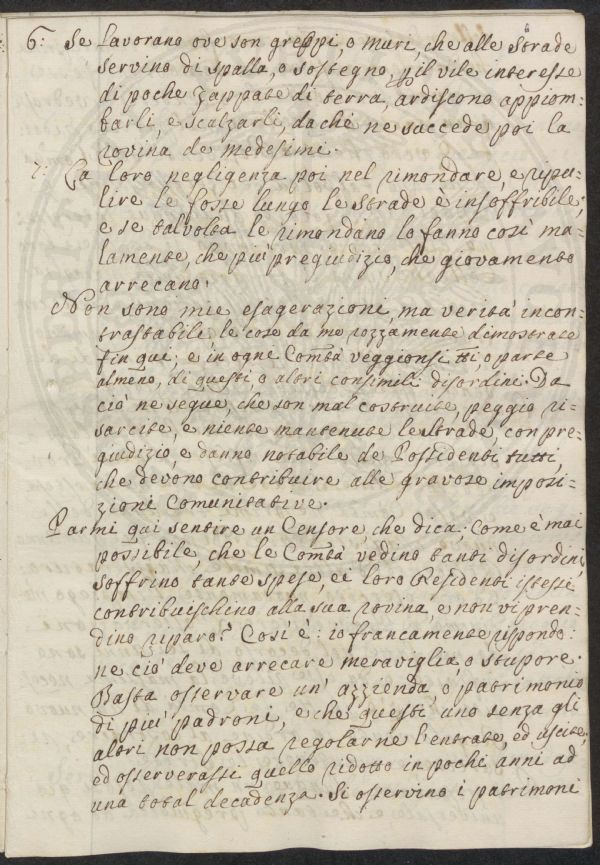 6: Se lavorano ove son greppi, o muri, che alle strade
servino di spalla, o sostegno, p il vile interesse
di poche zappate di terra, ardiscono appiom-
barli, e scalzarli, da che ne succede poi la
rovina de medesimi.
7: La loro negligenza poi nel rimondare, e ripu-
lire le fosse lungo le strade è insoffribile;
e se talvolta le rimondano lo fanno così ma-
lamente, che più pregiudizio, che giovamento
arrecano.
Non sono mie esagerazioni, ma verità incon-
trastabili le cose da me rozzamente dimostrate
fin qui; e in ogni Comtà veggionsi tti, o parte
almeno, di questi, o altri consimili disordini. Da
ciò ne segue, che son mal costruite, peggio ri-
sarcite, e niente mantenute le strade, con pre-
giudizio, e danno notabile de Possidenti tutti,
che devono contribuire alle gravose imposi-
zioni Comunitative.
Parmi qui sentire un Censore, che dica; Come è mai
possibile, che le Comtà vedino tanti disordini,
soffrino tante spese, e i loro Residenti istessi
contribuischino alla sua rovina, e non vi pren-
dino riparo? Così è: io francamente rispondo:
ne ciò deve arrecare meraviglia, o stupore.
Basta osservare un' azzienda, o patrimonio
di più padroni, e che questi uno senza gli
altri non possa regolarne l'entrate, ed uscite,
ed osserverassi quello ridotto in pochi anni ad
una total decadenza. Si osservino i patrimoni